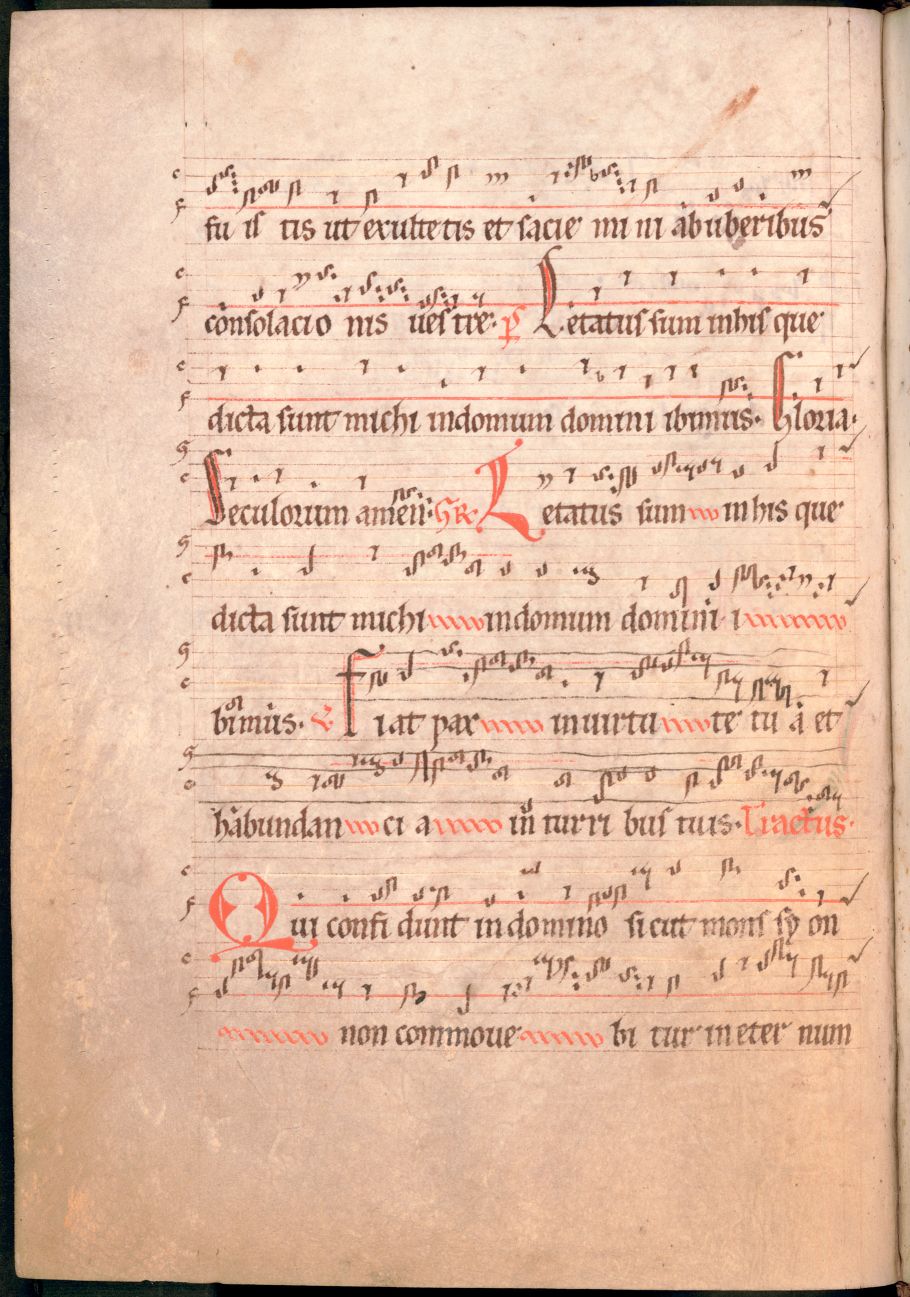 fu is tis ut exultetis et sacie mi ni ab uberibus
consolacio nis uestre. ps Letatus sum in his que
dicta sunt michi in domum domini ibimus. Gloria.
Seculorum amen. GR. Letatus sum in his que
dicta sunt michi in domum domini i
bimus. V. Fiat pax in uirtu te tu a et
habundan ci a in turri bus tuis. Tractus.
Qui confi dunt in domino sicut mons sy on
non commoue bi tur in eter num